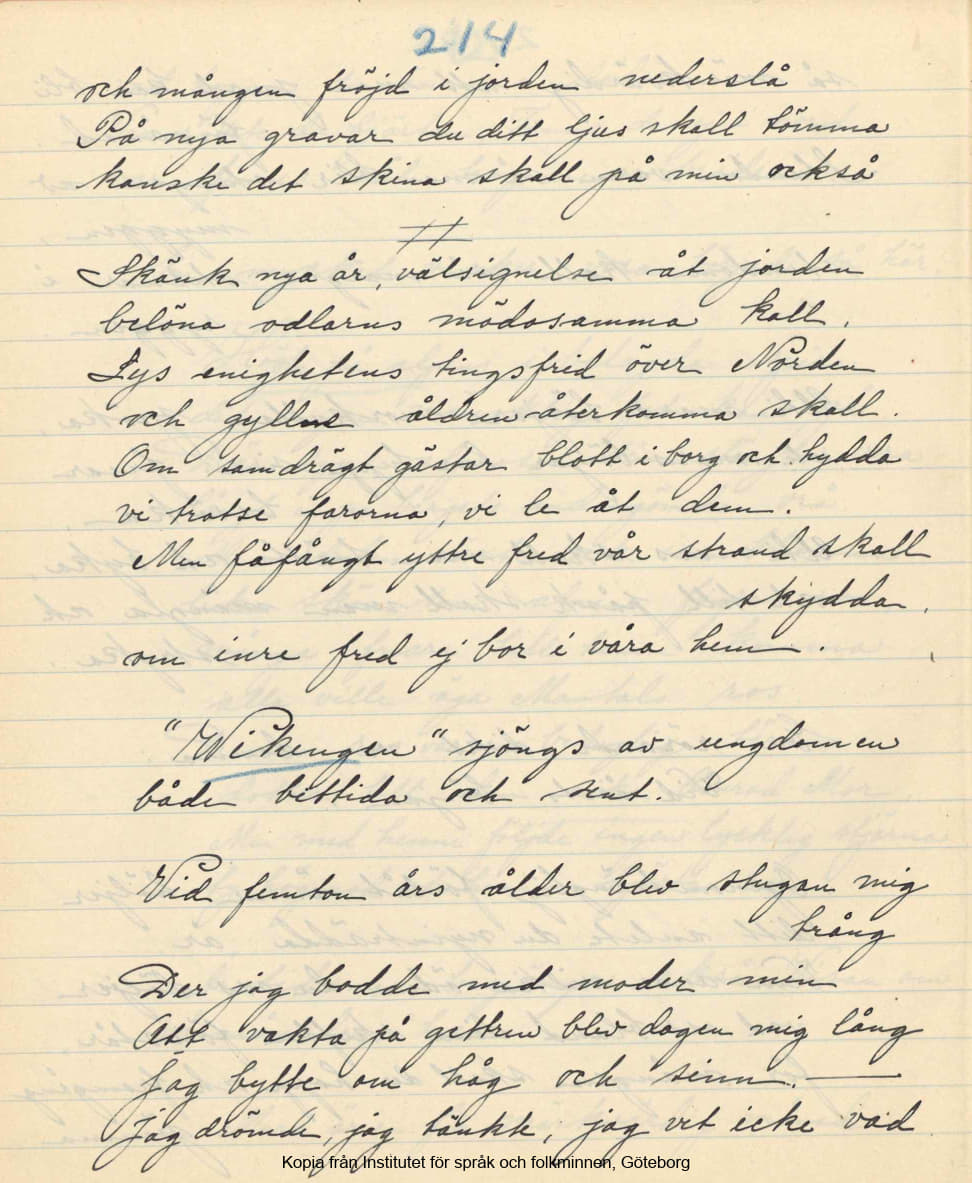 214
och mången fröjd i jorden nederslå
På nya gravar du ditt ljus skall tömma
kanske det skina skall på min också
Skänk nya år, välsignelse åt jorden
belöna odlarns mödosamma kall.
Lys enighetens tingsfrid över Norden
och gyllne åldren återkomma skall.
Om samdrägt gästar blott i borg och hydda
vi trotse farorna, vi le åt dem.
Men fåfångt yttre fred vår strand skall
skydda.
om inre fred ej bor i våra hem.
"Wikengen" sjöngs av ungdomen
både bittida och sent.
Vid femton års ålder blev stugan mig
trång
Der jag bodde med moder min
Att vakta på gettren blev dagen mig lång
Jag bytte om håg och sinn.
Jag drömde, jag tänkte, jag vet icke vad
Kopia från Institutet för språk och folkminnen, Göteborg